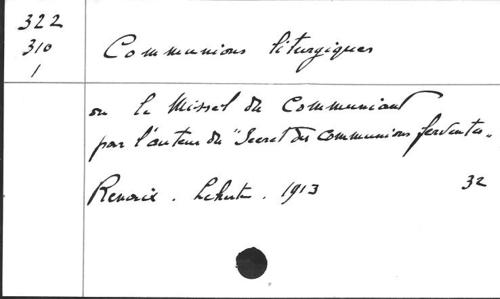 322
310
1
Communions liturgiques
ou le Missel du Communiant
par l'auteur du "Secret des Communions ferventes"
Renaix . . 1913
32